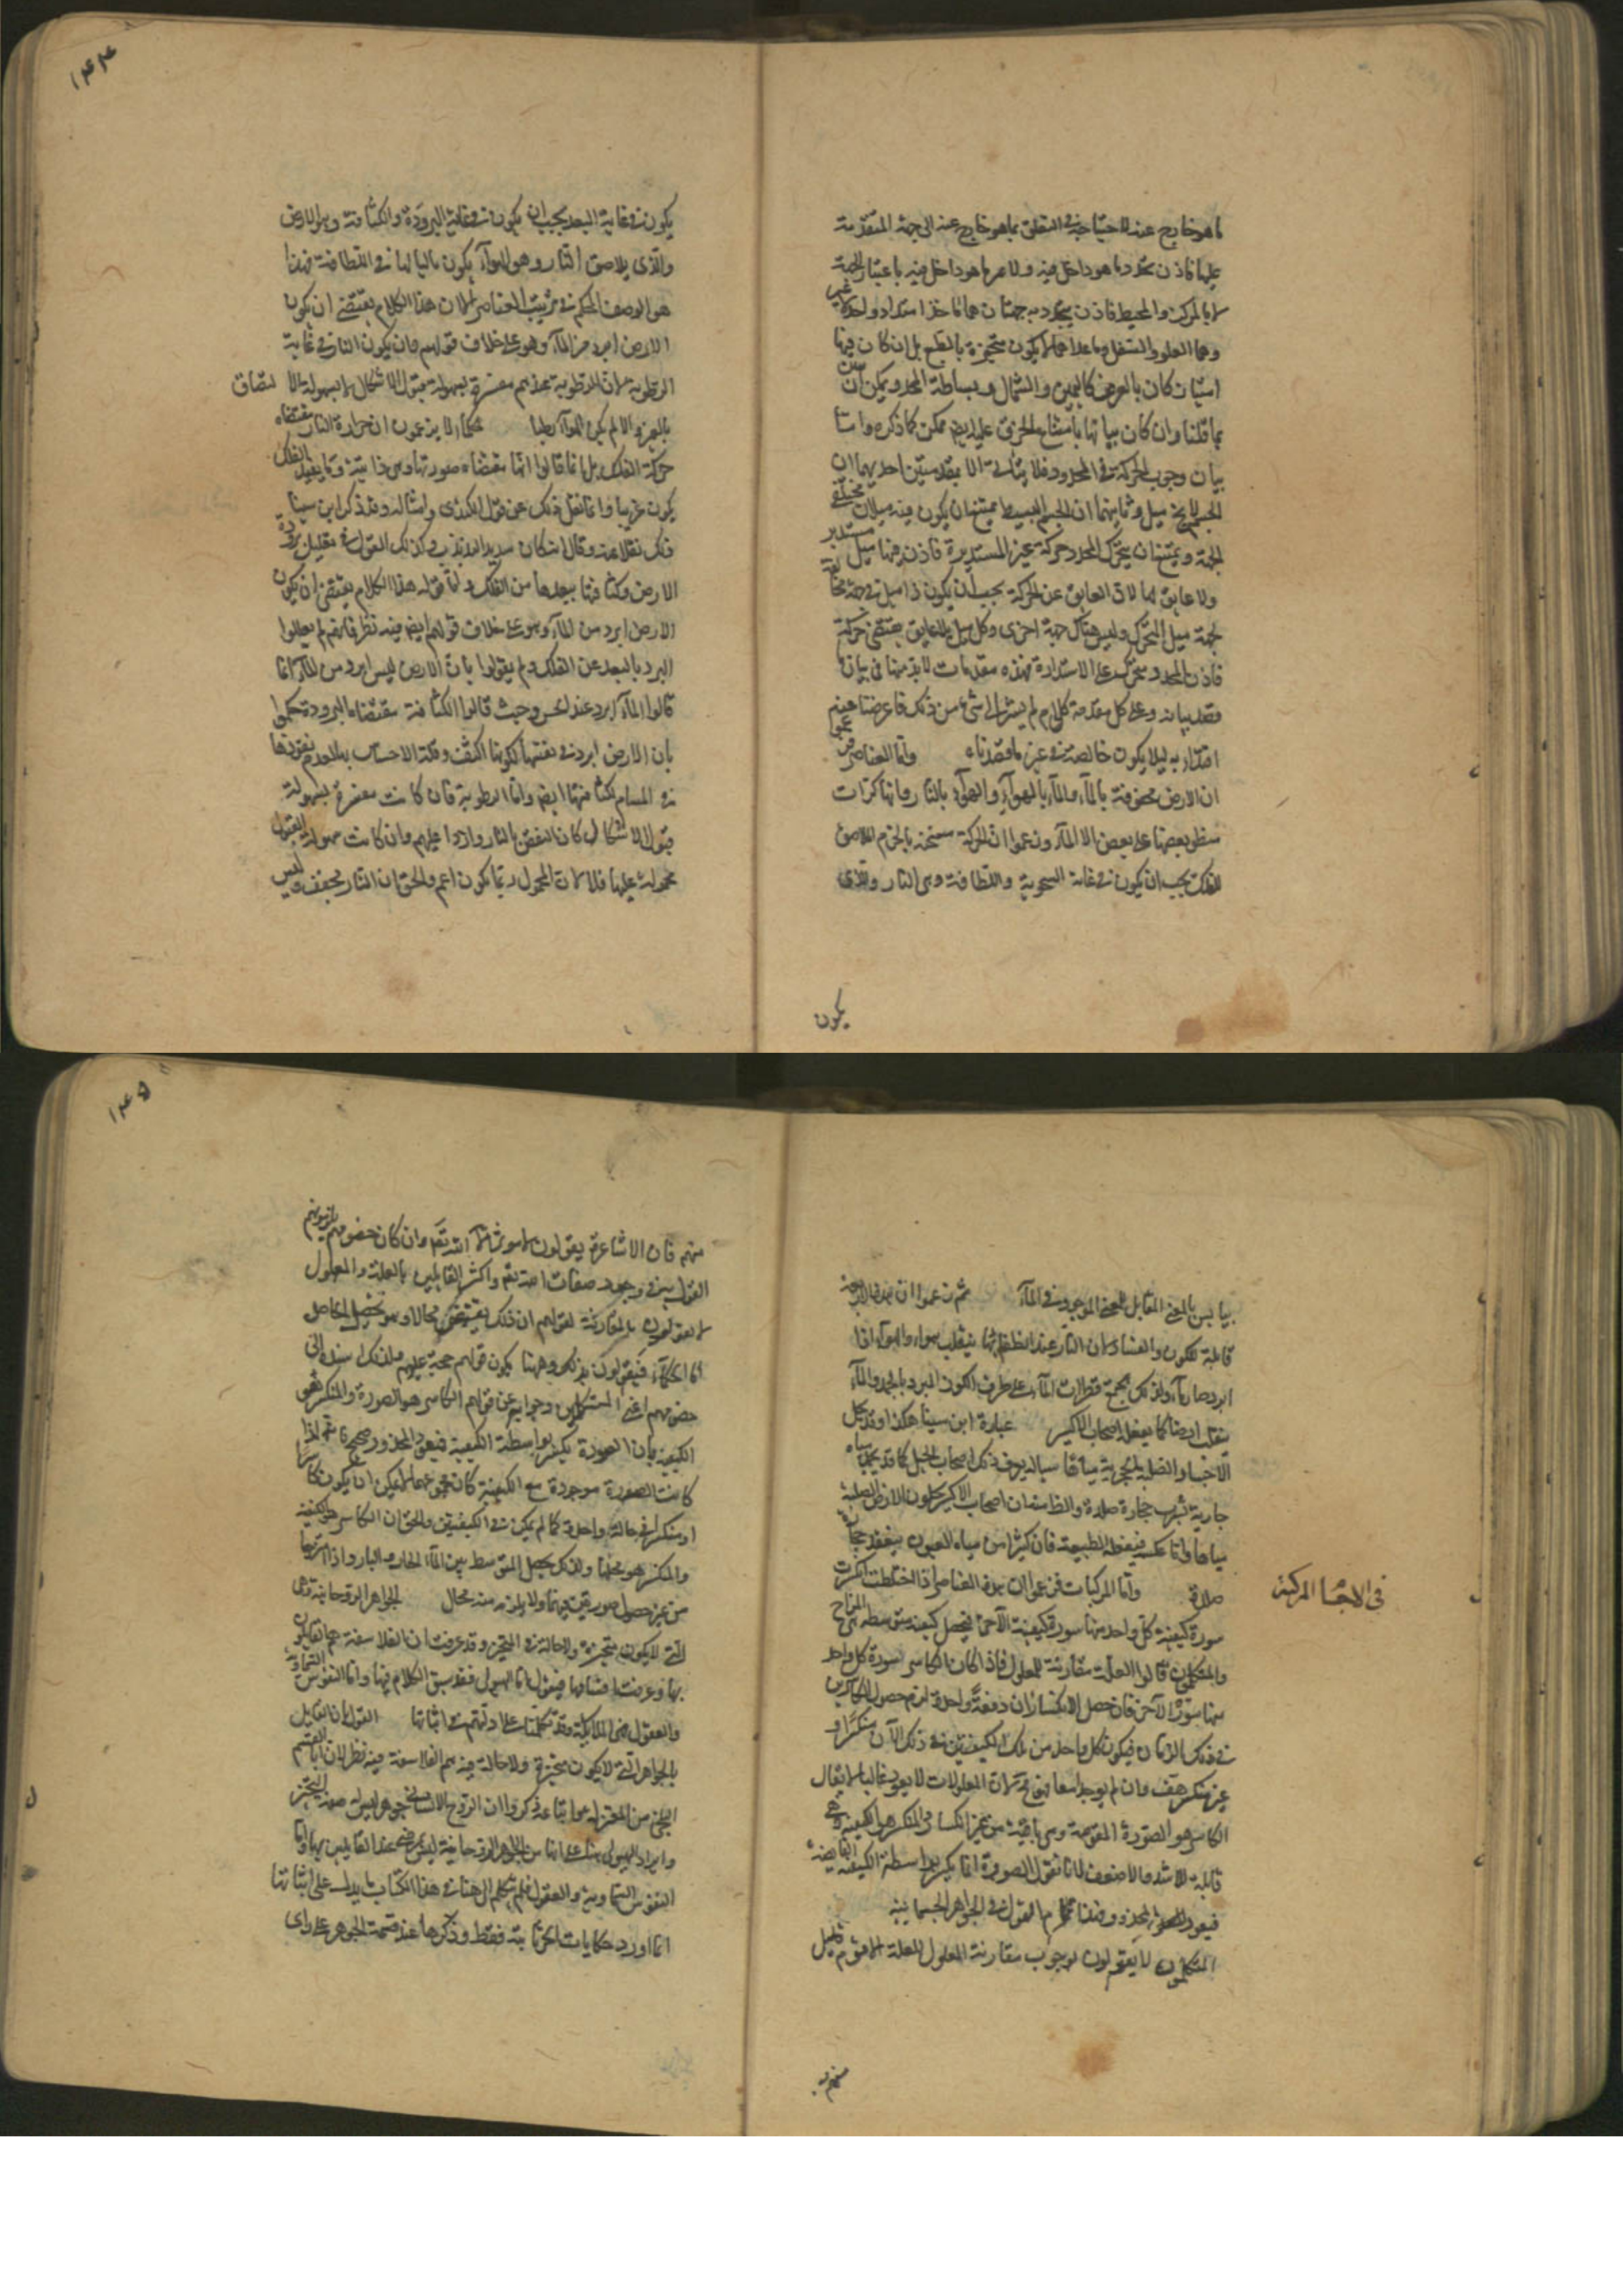 ما هو خارج عنه لاحتياجه في التعلق بما هو خارج عنه الى جهة المتقدمة
عليها فاذن تحدد ما هو داخل فيه ولا مرية ما هو داخل فيه باعتبار الجهة
لا بالمركز والمحيط فاذن يتحدد به جهتان هما مأخذ امتداد واحد غير
وهما العلو والسفل وما عداهما لا يكون متحيزة بالطبع بل ان كان فيها
امتيازات كان بالعرض كاليمين والشمال وبساطة المحدد يمكن ان
بما قلنا وان كان بيانها بامتناع الخرق عليه ايضا ممكن كما ذكره واما
بيان وجوب الحركة في المحدد فلا يتأتى الا بمقدمتين احديهما ان
الجسم لا يخ ميل وثانيهما ان الجسم البسيط يمتنع ان يكون فيه ميلان مختلفي
الجهة ويمتنع ان يتحرك المحدد حركة غير المستديرة فاذن فيها ميل مستدير
ولا عايق لها لان العايق عن الحركة يجب ان يكون ذا ميل في جهة مخالفة
لجهة ميل المتحرك وليس هناك جهة اخرى وكل ميل بلا عايق يقتضي حركة
فاذن المحدد متحرك على الاستدارة فهذه مقدمات لابد منها في بيان
وعلى كل مقدمة كلام لم يشر الى شيء من ذلك
ليلا يكون خالصة في غير ما قصدناه واما العناصر
ان الارض محفوفة بالمآء والمآء بالهوآء والهوآء بالنار وانها كرات
ينطوي بعضها على بعض الا المآء وزعموا ان الحركة مسخنة فالجرم الملاصق
للفلك يجب ان يكون في غاية السخونة واللطافة وهي النار والذي
يكون
١٤٤
يكون في غاية البعد يجب ان يكون في غاية البرودة والكثافة وهو الارض
والذي يلاصق النار وهو الهوآء يكون تاليا لها في اللطافة فهذا
هو الوصف المحكم في ترتيب العناصر الا ان هذا الكلام يقتضي ان يكون
الارض ابرد من المآء وهو على خلاف قولهم وان يكون النار في غاية
الرطوبة لان الرطوبة عندهم مفسرة بسهولة قبول الاشكال لا بسهولة الالتصاق
بالغير والا لم يكن الهوآء رطبا الحكمآء لا يزعمون ان حرارة النار مقتضاه
حركة الفلك بل انما قالوا انها مقتضاه صورتها وهي ذاتية وما يفيد الفلك
يكون غريبا وانما نقل ذلك عن قول الكندي وامثاله وقد ذكر ابن سينا
ذلك نقلا عنه وقال انه كان شديد التذبذب وكذلك القول في تعليل برودة
الارض وكثافتها ببعدها من الفلك واما قوله هذا الكلام يقتضي ان يكون
الارض ابرد من المآء وهو على خلاف قولهم ايضا فيه نظر فانهم لم يعللوا
البرد بالبعد عن الفلك ولم يقولوا بان الارض ليس ابرد من المآء انما
قالوا المآء ابرد عند الحس وحيث قالوا الكثافة مقتضاه البرودة حكموا
بان الارض ابرد في نفسها لكونها اكثف وقلة الاحساس به لعدم نفوذها
في المسام لكثافتها ايضا واما الرطوبة فان كانت مفسرة بسهولة
قبول الاشكال كان النقض بالنار واردا عليهم وان كانت سهولة القبول
محمولة عليها فلا لان المحمول ربما يكون اعم والحق ان النار مجفف وليس
١٤٥
بيابس بالمعنى المقابل للمعنى الموجود في المآء ثم زعموا ان هذه الاربعة
قابلة للكون والفساد لان النار عند انطفائها ينقلب هواء والهوآء اذا
ابرد صار مآء ولذلك يجمع قطرات المآء على طرف الكوز المبرد بالجمد والمآء
ينقلب ارضا كما يفعله اصحاب الاكسير عبارة ابن سينا هكذا وقد يحل
الاجساد الصلبة الحجرية مياها سيالة يعرف ذلك اصحاب الحيل كما قد يجمد مياه
جارية تشرب حجارة صلدة والظاهر ان اصحاب الاكسير يحلون الارض الصلبة
مياها واما عكسه فيفعله الطبيعة فان كثيرا من مياه العيون ينعقد حجارة
صلدة واما المركبات فزعموا ان هذه العناصر اذا اختلطت انكسرت
في الاجسا المركبة
سورة كيفية كل واحد منها سورة كيفية الآخر فيحصل كيفية متوسطة هي المزاج
والمتكلمون قالوا العلة مقارنة للمعلول فاذا كان الكاسر لسورة كل واحد
منها سورة الآخر فان حصل الانكساران دفعة واحدة لزم حصول الكاسرين
في ذلك الزمان فيكون كل واحد من تلك الكيفيتين في ذلك الآن منكسرا و
غير منكسر هف وان لم يوجدا معا فبح لان المعلولات لا يعود غالبا لا يقال
الكاسر هو الصورة المقومة وهي باقية من غير انكسار والمنكسر هو الكيفية وهي
قابلة للاشد والاضعف لانا نقول الصورة انما يكسر بواسطة الكيفية الفايضة
فيعود المحذور وهذا تمام القول في الجواهر الجسمانية
المتكلمون لا يقولون بوجوب مقارنة المعلول للعلة الا قوم قليل
منهم
منهم فان الاشاعرة يقولون لا مؤثر الا الله تعم وان كان خصومهم يلزمونهم
القول به في وجود صفات الله تعم واكثر القايلين بالعلة والمعلول
لا يقولون بالمقارنة لقولهم ان ذلك يقتضي محالا وهو تحصيل الحاصل
اما الحكمآء فيقولون بذلك وههنا يكون قولهم حجة عليهم ولذلك اسنده الى
خصومهم اعني المتكلمين وجوابهم عن قولهم الكاسر هو الصورة والمنكسر هو
الكيفية بان الصورة يكسر بواسطة الكيفية فيعود المحذور صحيح فانه اذا
كانت الصورة موجودة مع الكيفية كان مجموعهما لا يمكن ان يكون كاسرا
او منكسرا في حالة واحدة كما لم يمكن في الكيفيتين والحق ان الكاسر هو الكيفية
والمنكسر هو محلها ولذلك يحصل المتوسط بين المآء الحار والبارد اذا امتزجا
من غير حصول صورتين فيهما ولا يلزم منه محال الجواهر الروحانية وهي
التي لا يكون متحيزة ولا حالة في المتحيز وقد عرفت ان الفلاسفة هم القايلون
بها وعرفت اقسامها فنقول اما الهيولى فقد سبق الكلام فيها واما النفوس السماوية
والعقول فهي الملايكة وقد تكلمنا على ادلتهم في اثباتها القول بان القايل
بالجواهر التي لا يكون متحيزة ولا حالة فيه هم الفلاسفة فيه نظر لان ابا القسم
البلخي من المعتزلة واتباعه ذكروا ان الروح الانساني جوهر ليس له صفة التحيز
وايراد الهيولى هناك على انها من الجواهر الروحانية ليس بمرضى عند القايلين بها واما
النفوس السماوية والعقول فلم يتكلم الى هنا في هذا الكتاب بما يدل على اثباتها
انما اورد حكايات اثباتية فقط وذكرها عند قسمة الجوهر على راى